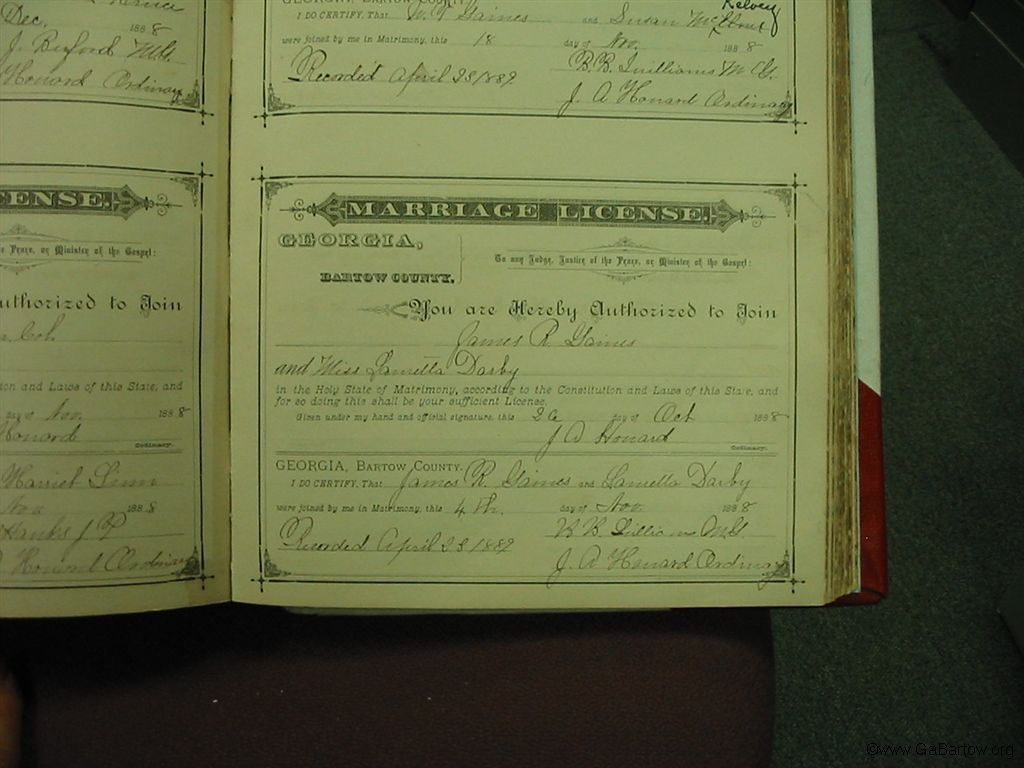 Dec. 1888
J. Buford M.G.
Howard Ordinary
ENSE.
the Peace, or Minister of the Gospel:
uthorized to Join
Col.
on and Laws of this State, and
day of Nov. 1888
Howard
Ordinary.
Harriet
Nov 1888
Hanks J P
Howard Ordinary
GEORGIA, BARTOW COUNTY.
I DO CERTIFY, That W. Gaines and Susan Mc Kelvey
were joined by me in Matrimony, this 18 day of Nov. 1888
Recorded April 23 1889 B. B. Quillians M G.
J. A Howard Ordinary
MARRIAGE LICENSE.
GEORGIA,
BARTOW COUNTY.
To any Judge, Justice of the Peace, or Minister of the Gospel:
You are Hereby Authorized to Join
James R. Gaines
and Miss Lauretta Darby
in the Holy State of Matrimony, according to the Constitution and Laws of this State, and
for so doing this shall be your sufficient License.
Given under my hand and official signature, this 26 day of Oct 1888
J A Howard
Ordinary.
GEORGIA, BARTOW COUNTY.
I DO CERTIFY, That James R. Gaines and Lauretta Darby
were joined by me in Matrimony, this 4th. day of Nov. 1888
Recorded April 23 1889 B B Quillians M.G.
J. A Howard Ordinary
©www.GaBartow.org